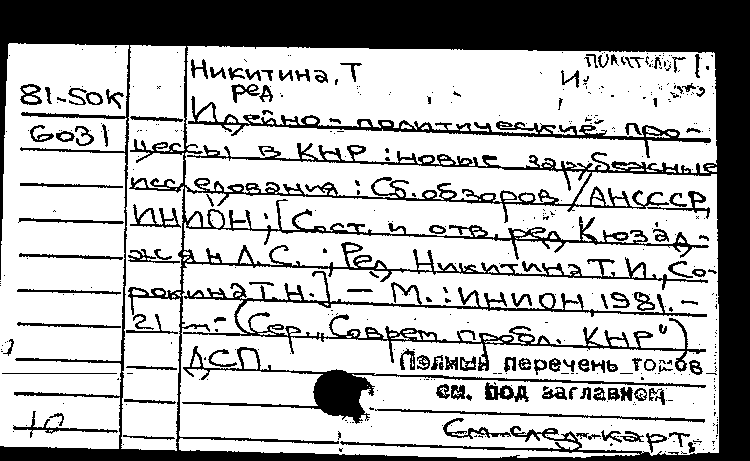 Никитина, Т
81-SOK
ред.
Идейно-политические про-
6031
цессы в КНР : новые зарубежные
исследования : Сб. обзоров / АНСССР,
ИНИОН ; [Сост. и отв. ред Кюзад-
жян Л.С. ; Ред. Никитина Т.И., Со-
рокина Т.Н.]. — М. : ИНИОН, 1981. -
21 - (Сер. „Соврем. пробл. КНР")
ДСП.
Полный перечень томов
см. под заглавием
10
См. след. карт.